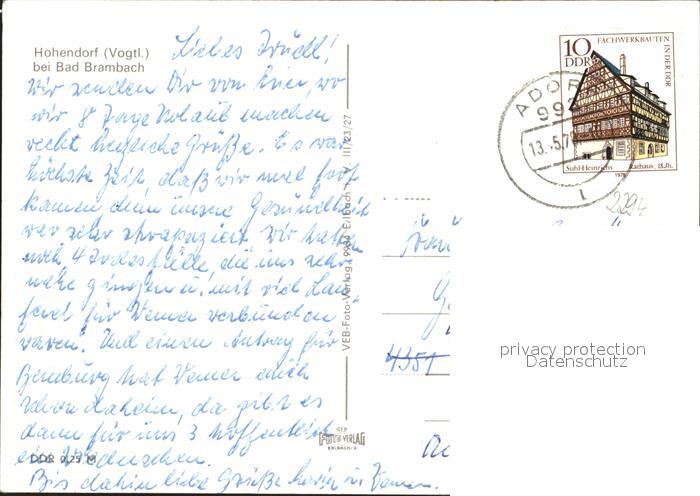 Hohendorf (Vogtl.)
bei Bad Brambach
Liebes Trudl!
Wir senden Dir von hier, wo
wir 8 Tage Urlaub machen
recht herzliche Grüße. Es war
höchste Zeit, daß wir mal fort
kamen, denn unsere Gesundheit
war sehr strapaziert. Wir hatten
4 Todesfälle, die uns sehr
nahe gingen u. mit viel Lau-
ferei für Werner verbunden
waren. Und einen Antrag für
Bernburg hat Werner auch
schon daheim, da gibt es
dann für uns 3 hoffentlich
ein Wiedersehen.
Bis dahin liebe Grüße u. Werner.
DDR 0,25 M
VEB-Foto-Verlag, 9934 Erlbach III/23/27
FOTO VERLAG
ERLBACH/V.
10
DDR
FACHWERKBAUTEN
IN DER DDR
Suhl-Heinrichs Rathaus, 18.Jh.
1978
ADOR
99
13.-5.79
2294
4351
privacy protection
Datenschutz